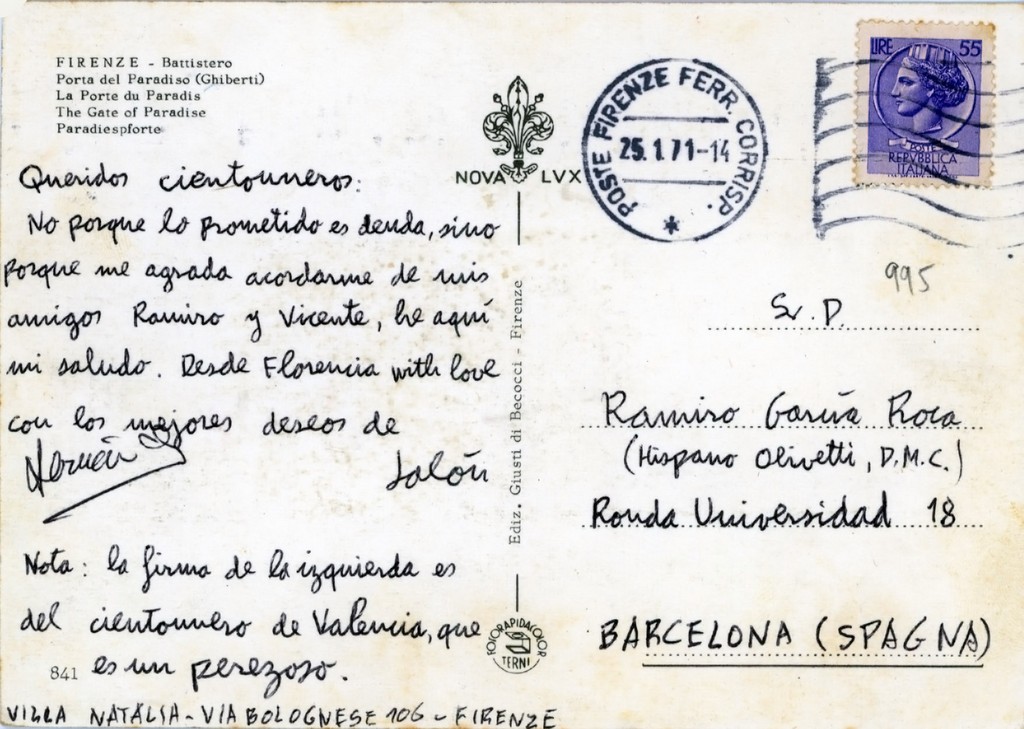 FIRENZE - Battistero
Porta del Paradiso (Ghiberti)
La Porte du Paradis
The Gate of Paradise
Paradiespforte
NOVA LVX
POSTE FIRENZE FERR. CORRISP.
25.1.71-14
LIRE 55
POSTE
REPVBBLICA
ITALIANA
Queridos cientouneros:
No porque lo prometido es deuda, sino
porque me agrada acordarme de mis
amigos Ramiro y Vicente, he aquí
mi saludo. Desde Florencia with love
con los mejores deseos de
Jalón
Nota: la firma de la izquierda es
del cientounero de Valencia, que
es un perezoso.
841
VILLA NATALIA - VIA BOLOGNESE 106 - FIRENZE
Ediz. Giusti di Becocci - Firenze
FOTORAPIDACOLOR
TERNI
995
Sr. D.
Ramiro García Roca
(Hispano Olivetti, D.M.C.)
Ronda Universidad 18
BARCELONA (SPAGNA)